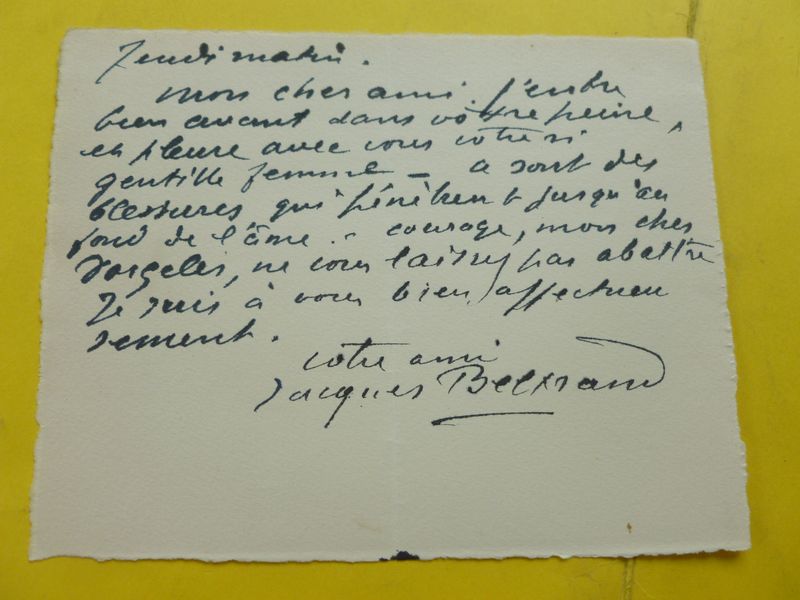 Jeudi matin.
mon cher ami. J'entre
bien avant dans votre peine,
et pleure avec vous votre si
gentille femme — ce sont des
blessures qui pénètrent jusqu'au
fond de l'âme. - courage, mon cher
Dorgelès, ne vous laissez pas abattre
Je suis à vous bien affectueu
sement.
votre ami
Jacques Beltrand